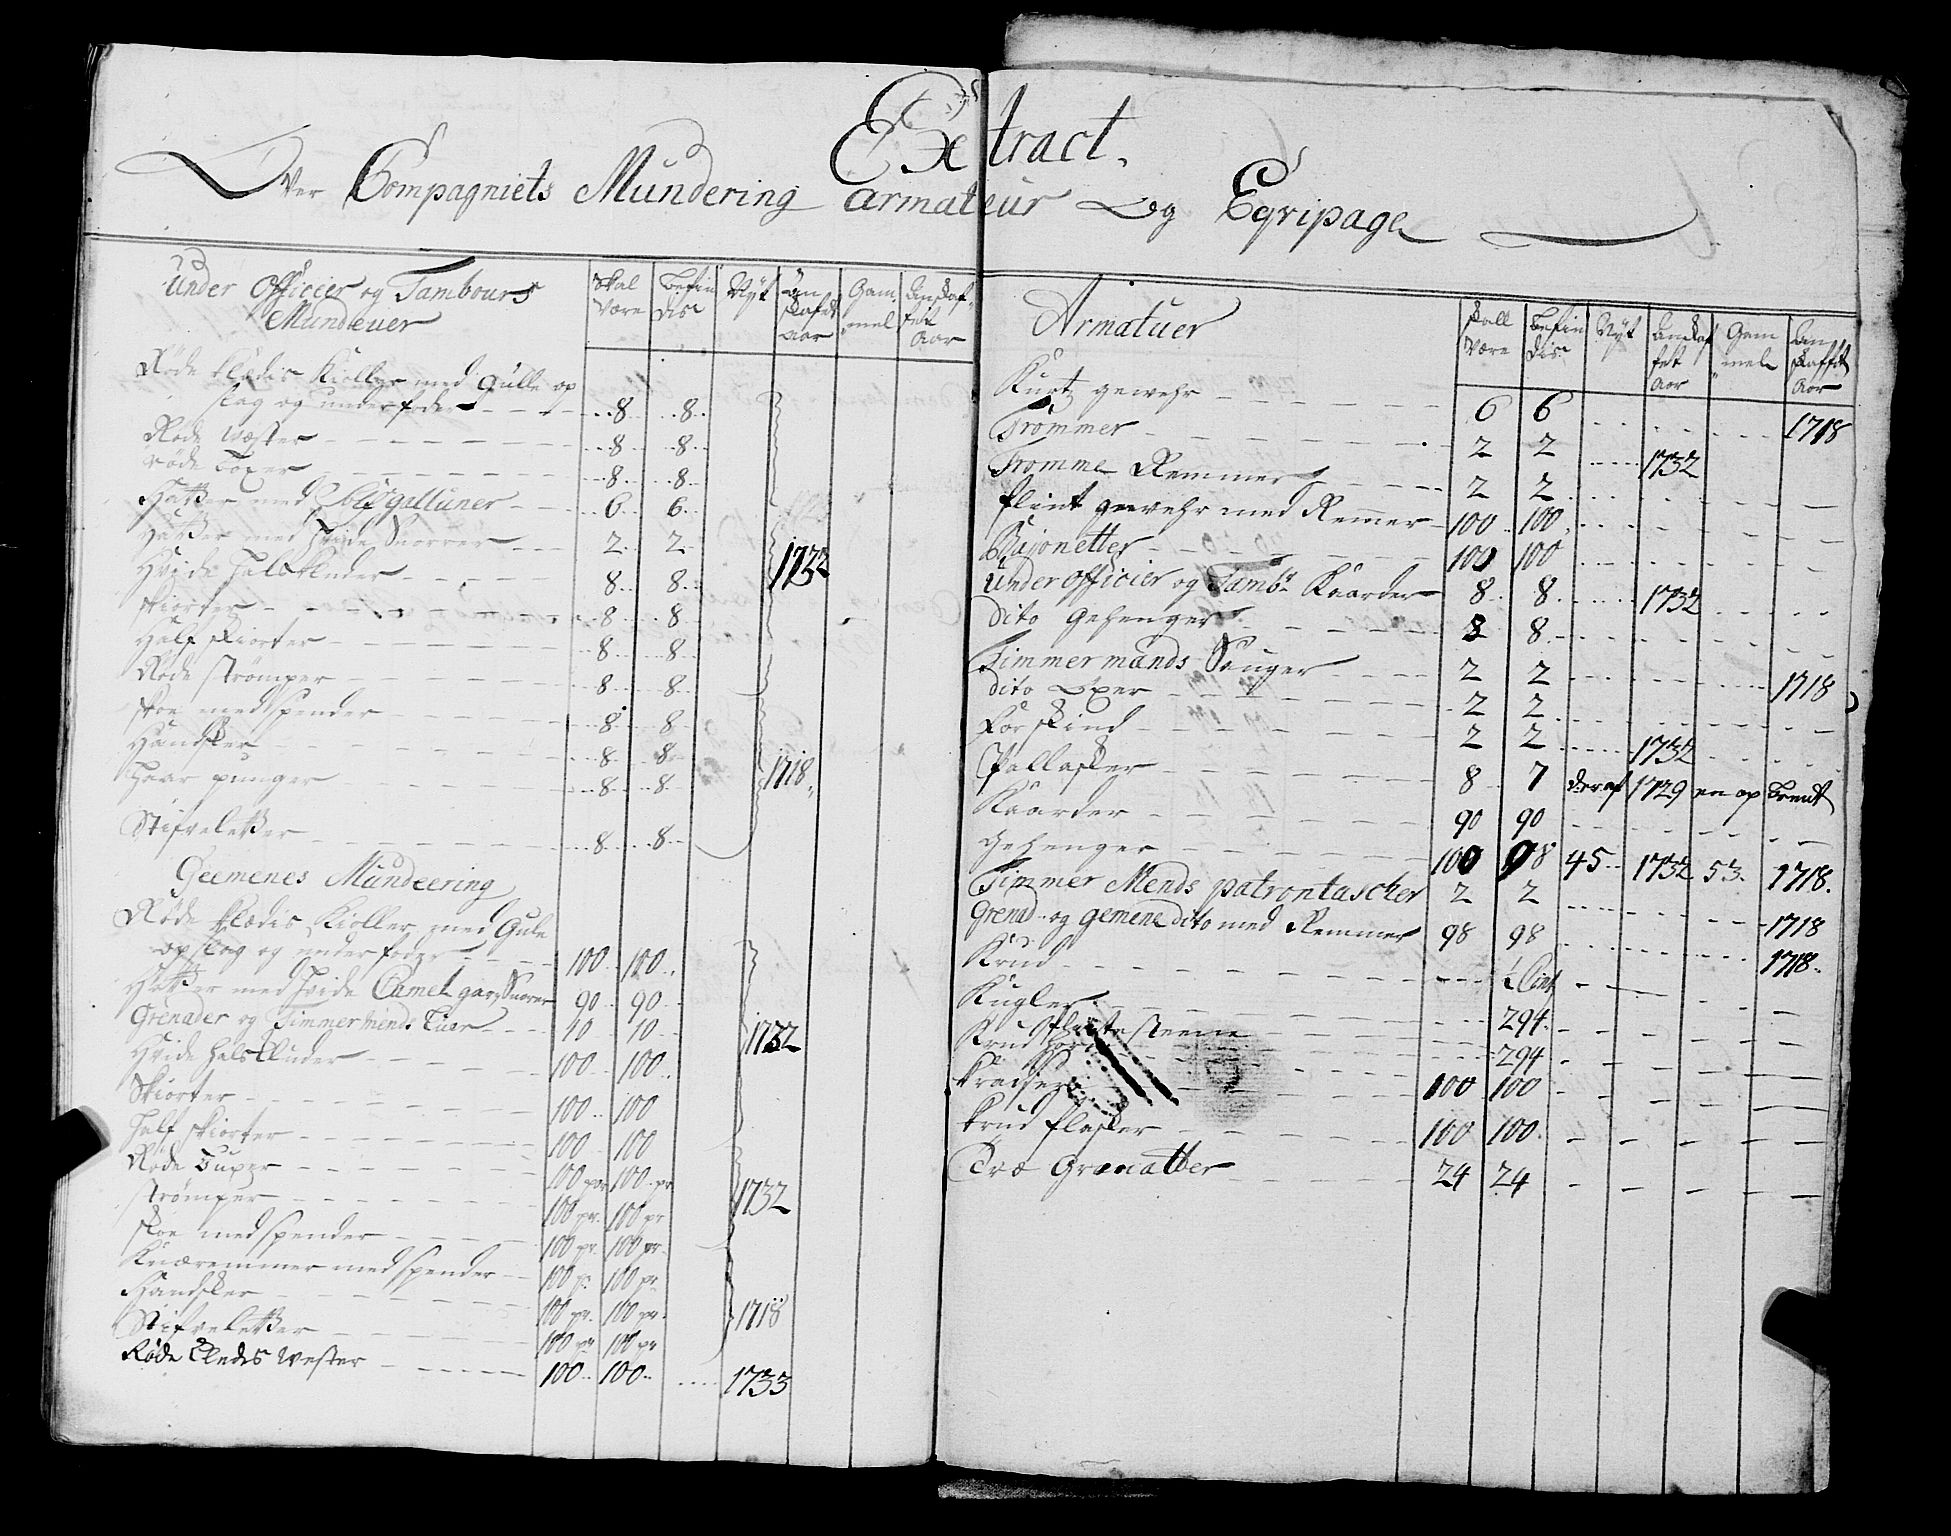 Extract.
Over Compagniets Mundering Armateur Og Eqvipage
Under Officier og Tambours Munduer | Skal Være | Befindis | Nÿt | Anskafdt Aar | Gammel | Anskaffet Aar
Røde klædis Kioller med Gulle op
slag og underfoder | 8 | 8
Røde Wæster | 8 | 8
røde boxer | 8 | 8
Hatter med galluner | 6 | 6
Hatter med hvide Snorrer | 2 | 2 | 1732
Hvide halskluder | 8 | 8
skiorter | 8 | 8
Half skiorter | 8 | 8
Røde strømper | 8 | 8
skoe med spender | 8 | 8
Handsker | 8 | 8
haar punger | 8 | 8 | 1718
Stifveletter | 8 | 8
Geemenes Mundeering
Røde klædis Kioller med Gule
opslag og underfoder | 100 | 100
Hatter med hvide Camel garn Snorer | 90 | 90
Grenader og Timmermends luer | 10 | 10 | 1732
Hvide halskluder | 100 | 100
Skiorter | 100 | 100
half skiorter | 100 | 100
Røde buxer | 100 par | 100 pr
strømper | 100 pr. | 100 pr | 1732
skoe med spender | 100 pr. | 100 pr.
Knæremmer med spender | 100 p: | 100 pr
Handsker | 100 pr. | 100 pr.
Stifveletter | 100 pr | 100 pr | 1718
Røde Cledis Wester | 100 | 100 | 1733
Armatuer | skall være | Befindis | Nÿt | Anskaffet Aar | Gammel | Anskaffdt Aar
Kurtz gewehr | 6 | 6 | 1718
Trommer | 2 | 2 | 1732
Tromme Remmer | 2 | 2
flint gewehr med Remmer | 100 | 100
Bajonetter | 100 | 100
Under officier og Tambr Kaarder | 8 | 8 | 1732
dito gehenger | 8 | 8
Timmermands Sauger | 2 | 2 | 1718
dito Øxer | 2 | 2
Forskind | 2 | 2 | 1732
Pallasker | 8 | 7 | deraf 1729 en op brent
Kaarder | 90 | 90
gehenger | 100 | 98 | 45 | 1732 | 53 | 1718.
Timmer Mends patrontascher | 2 | 2
Grenad- og gemene dito med Remmer | 98 | 98 | 1718
Krud | 1718
Kugler | 294
steene | 294
Kradser | 100 | 100
krud flasker | 100 | 100
Træ Granatter | 24 | 24